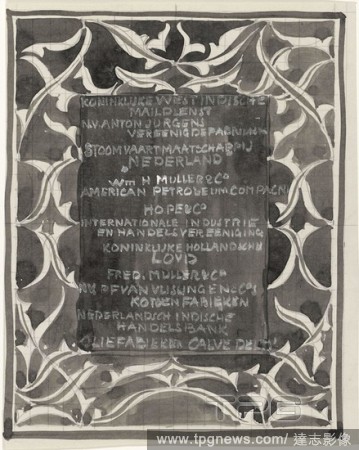 KONINKLIJKE WEST INDISCHE
MAILDIENST
N.V. ANTON JURGENS
VEREENIGDE FABRIEKEN
STOOMVAART MAATSCHAPPIJ
NEDERLAND
WM H MULLER & Co
AMERICAN PETROLEUM COMPAGNI
HOPE & Co
INTERNATIONALE INDUSTRIE
EN HANDELSVEREENIGING
KONINKLIJKE HOLLANDSCHE
LOYD
FRED. MULLER & Co
VAN VLISSINGEN & Co
KATOEN FABRIEKEN
NEDERLANDSCH INDISCHE
HANDELSBANK
OLIEFABRIEKEN CALVÉ DELFT
www.tpgnews.com/ 達志影像